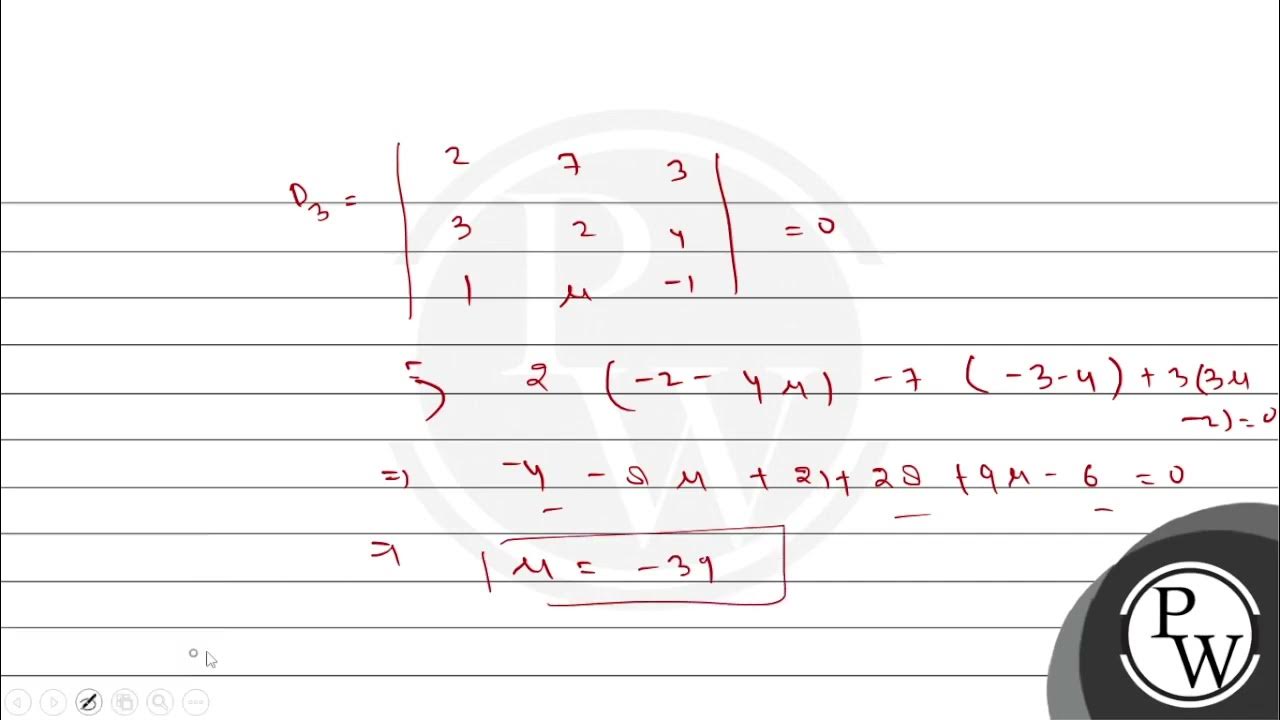 D₃ = | 2 7 3 |
| 3 2 4 | = 0
| 1 μ -1 |
⇒ 2 (-2 - 4μ) - 7 (-3-4) + 3(3μ
-2) = 0
⇒ -4 - 8μ + 21 + 28 + 9μ - 6 = 0
⇒ μ = -39
PW
PW